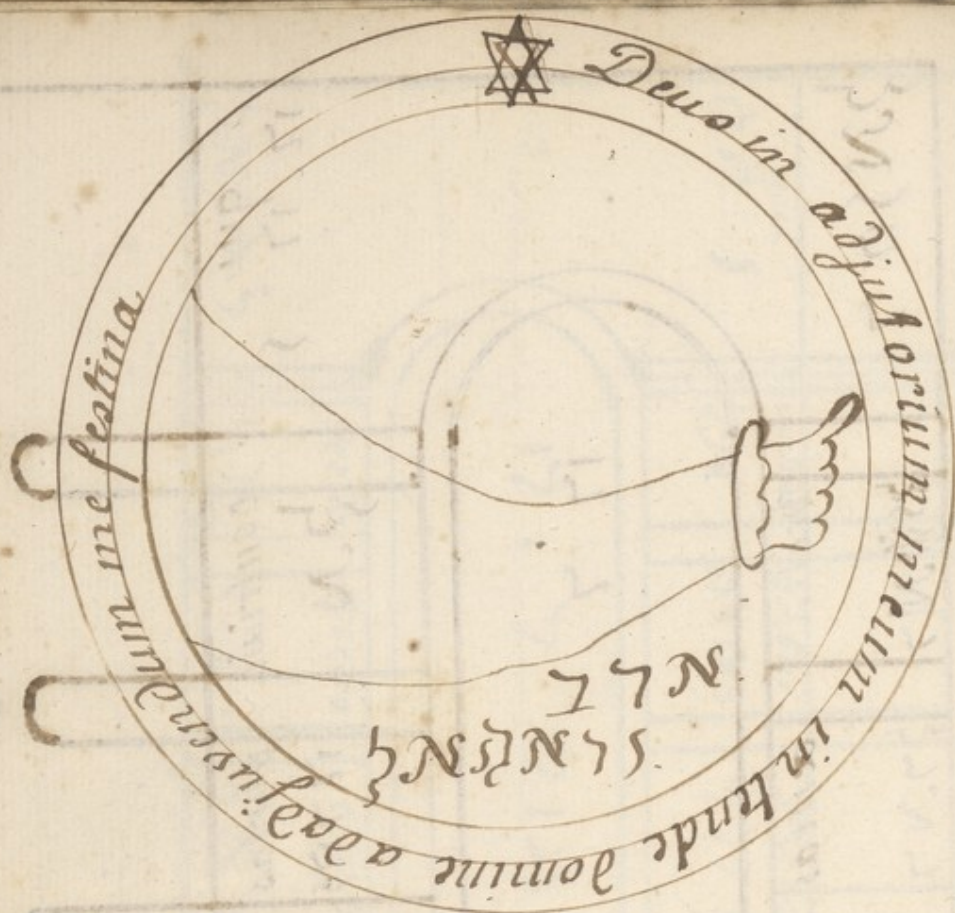 Deus in adjutorium meum in tende domine ad adjuvendum me festina
ארב